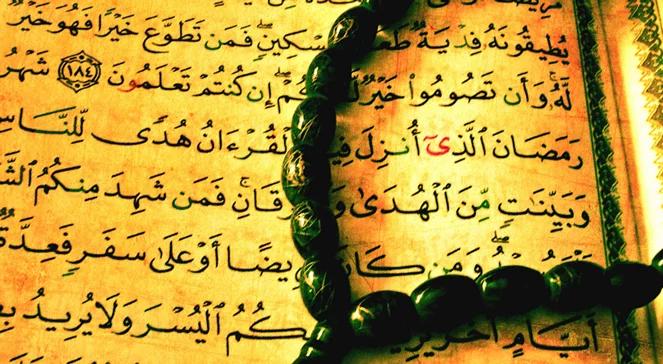 يُطِيقُونَهُۥ فِدْيَةٌ فَمَن تَطَوَّعَ خَيْرًا فَهُوَ خَيْرٌ
لَّهُۥ وَأَن تَصُومُوا۟ خَيْرٌ إِن كُنتُمْ تَعْلَمُونَ ١٨٤ شَهْرُ
رَمَضَانَ ٱلَّذِىٓ أُنزِلَ ٱلْقُرْءَانُ هُدًى لِّلنَّاسِ
وَبَيِّنَٰتٍ مِّنَ ٱلْهُدَىٰ فَمَن شَهِدَ مِنكُمُ
وَمَن أَوْ عَلَىٰ سَفَرٍ فَعِدَّةٌ
أَيَّامٍ أُخَرَ ٱلْيُسْرَ وَلَا يُرِيدُ